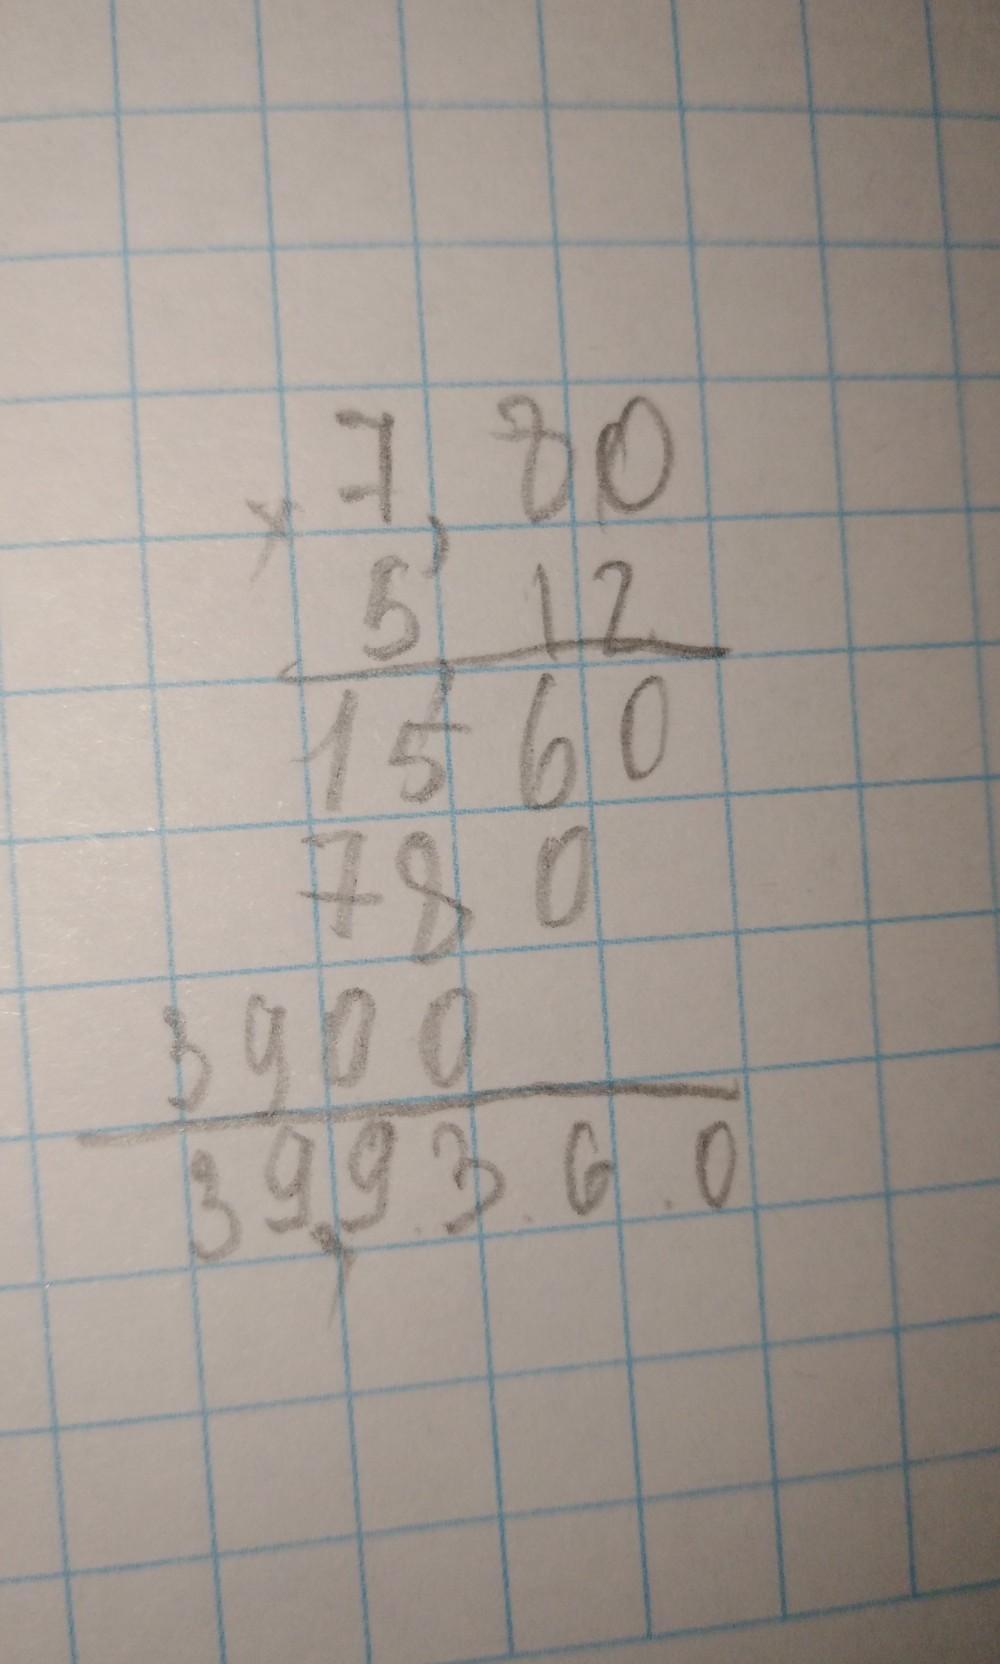 7,80
×
5,12
1560
780
3900
39,9360